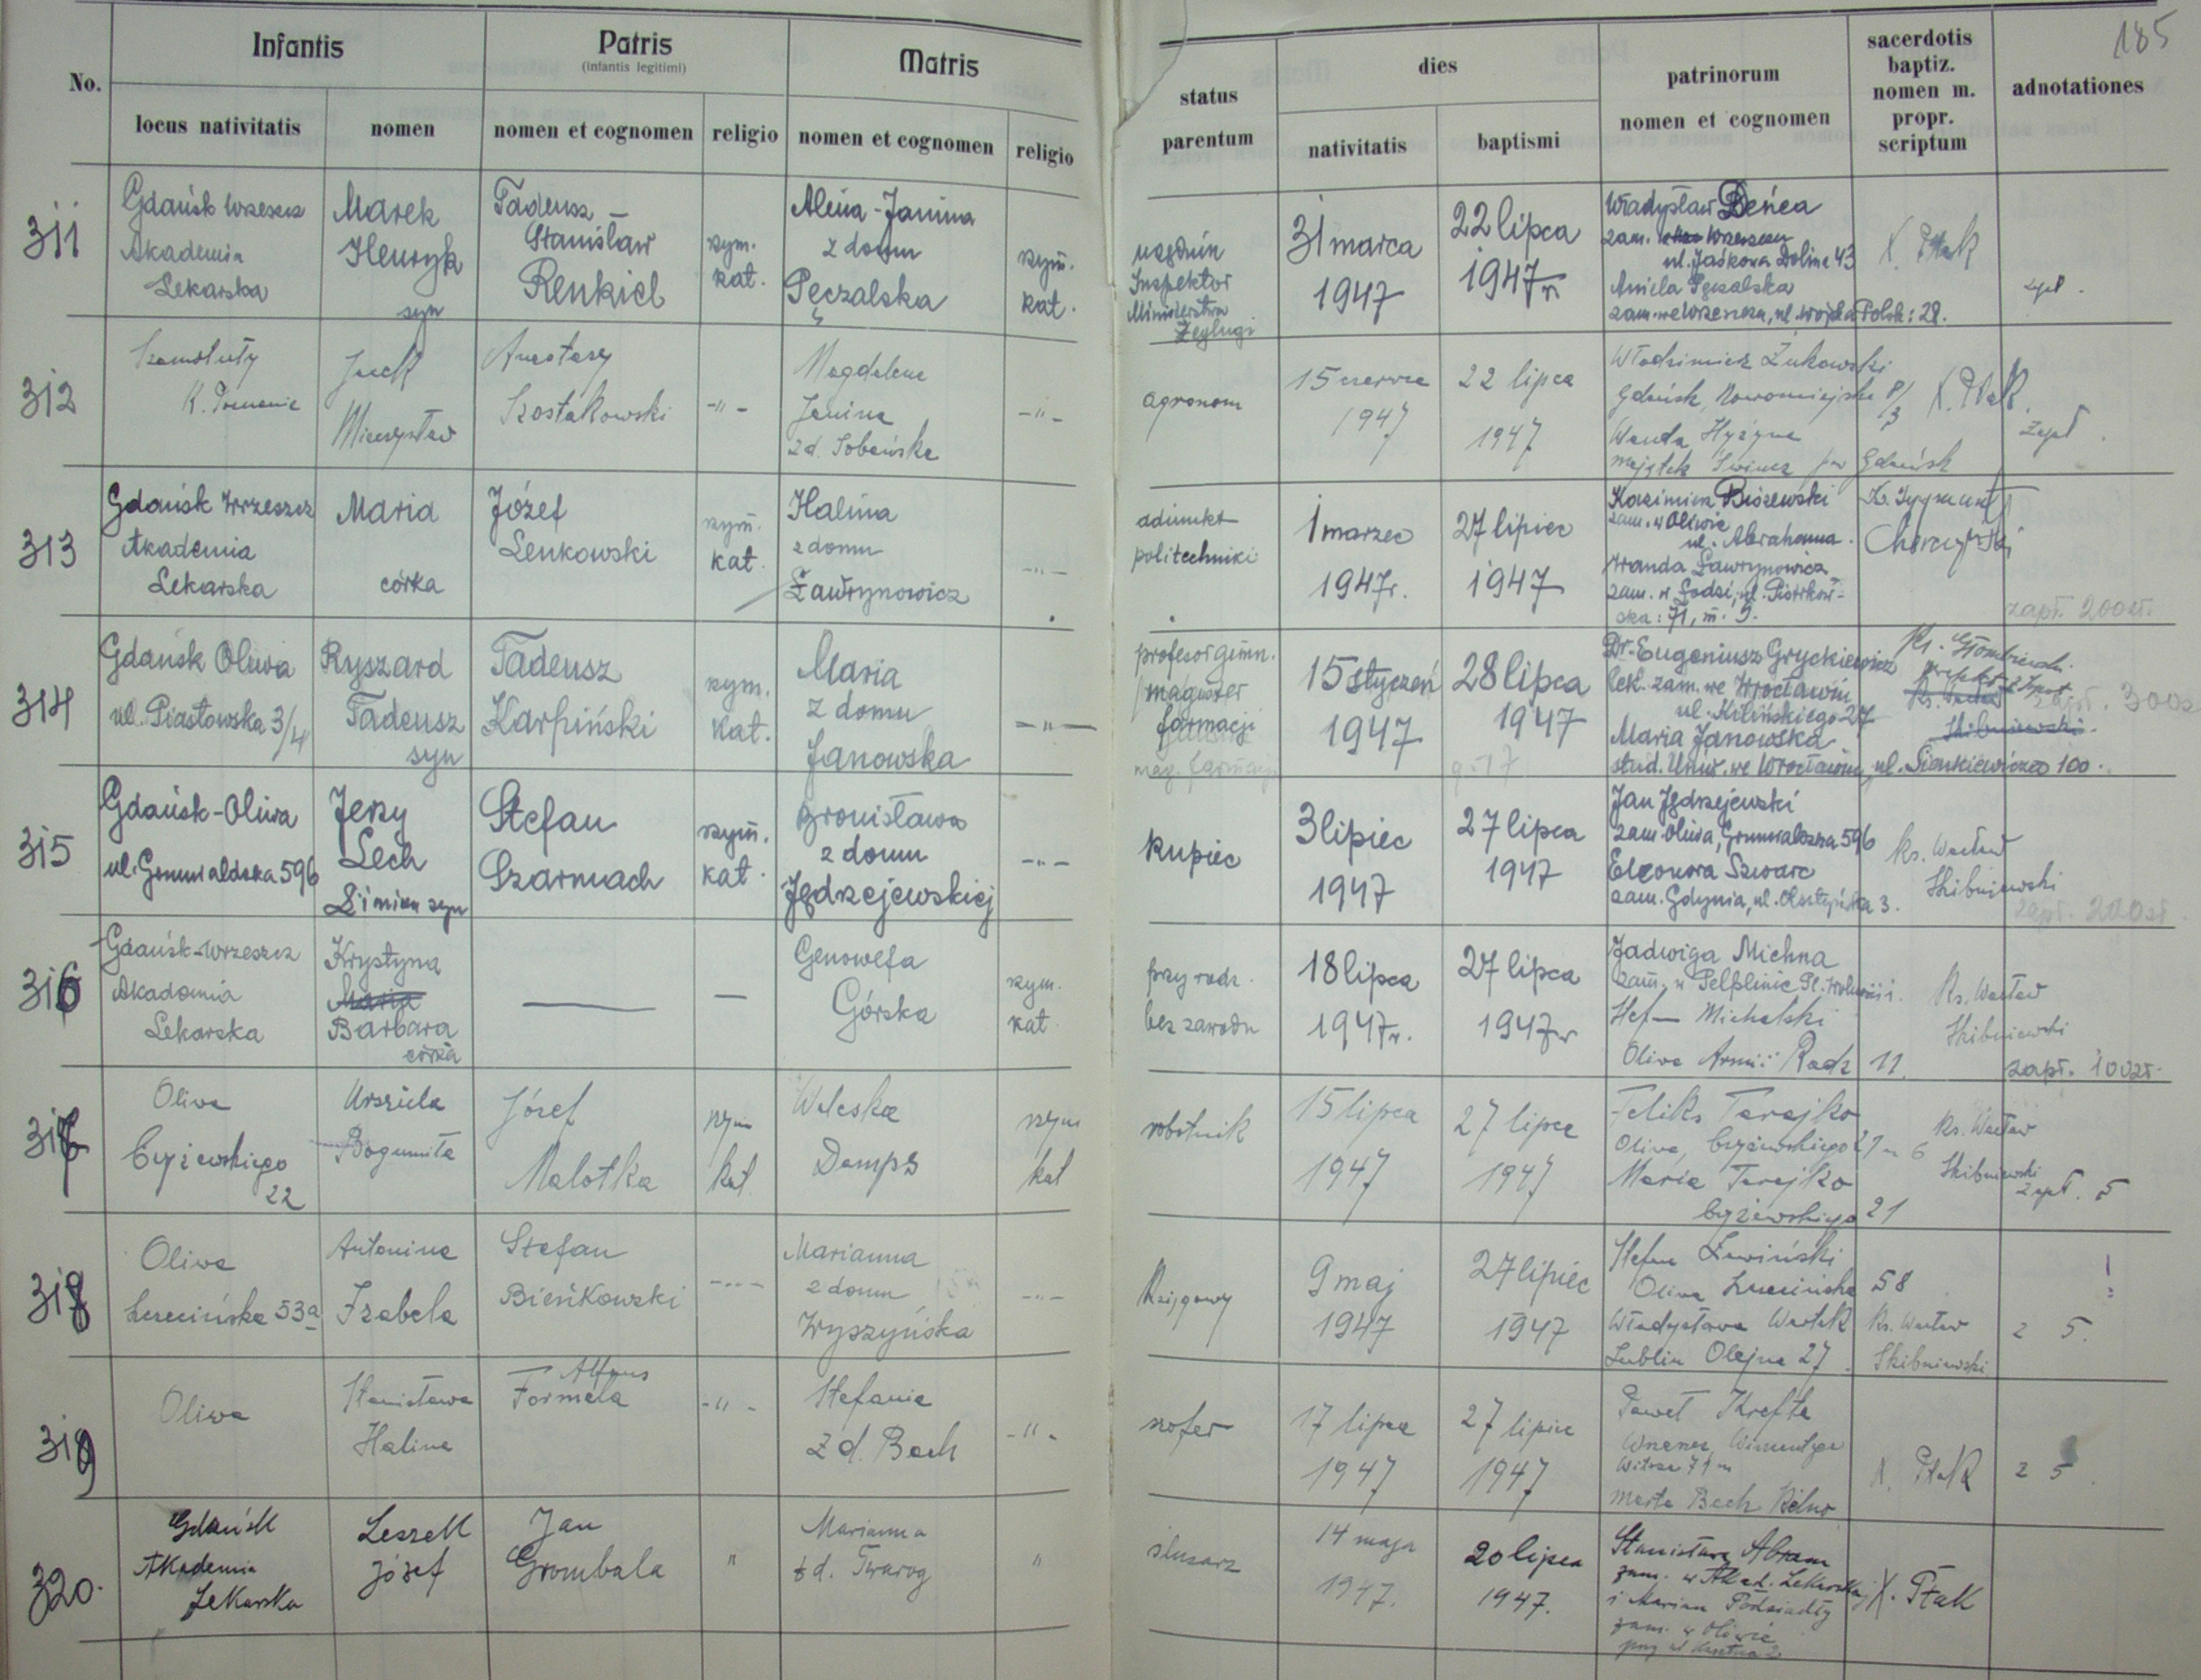 185
No.
Infantis
locus nativitatis
nomen
Patris
(infantis legitimi)
nomen et cognomen
religio
Matris
nomen et cognomen
religio
status
parentum
dies
nativitatis
baptismi
patrinorum
nomen et cognomen
sacerdotis
baptiz.
nomen m.
propr.
scriptum
adnotationes
311
Gdańsk Wrzeszcz
Akademia
Lekarska
Marek
Henryk
syn
Tadeusz
Stanisław
Renkiel
rzym.
kat.
Alina-Janina
z domu
Pęczalska
rzym.
kat.
Inspektor
Ministerstwa
Żeglugi
31 marca
1947
22 lipca
1947 r.
Władysław Deńca
zam. Wrzeszcz
ul. Jaśkowa Dolina 43
Aniela Pęczalska
zam. we Wrzeszczu, ul. Wojska Polsk: 28.
X. Ptak
zapł.
312
Szamotuły
Jacek
Mieczysław
Anastazy
Szostakowski
-"-
Magdalena
Janina
z d. Sobańska
-"-
agronom
15 czerwca
1947
22 lipca
1947
Włodzimierz Żukowski
Gdańsk, Nowomiejska 8/3
Wanda Hyżyna
majątek Gdańsk
X. Ptak
zapł.
313
Gdańsk Wrzeszcz
Akademia
Lekarska
Maria
córka
Józef
Lenkowski
rzym.
kat.
Halina
z domu
Ławrynowicz
-"-
adiunkt
politechniki
1 marzec
1947 r.
27 lipiec
1947
Kazimierz Biszewski
zam. w Oliwie
ul. Abrahama.
Wanda Ławrynowicz
zam. w Łodzi, ul. Piotrkow-
ska: 71, m. 9.
Ks. Zygmunt
zapł. 200 zł.
314
Gdańsk Oliwa
ul. Piastowska 3/4
Ryszard
Tadeusz
syn
Tadeusz
Karpiński
rzym.
kat.
Maria
z domu
Janowska
-"-
profesor gimn.
magister
farmacji
mag. farmacji
15 styczeń
1947
28 lipca
1947
Dr. Eugeniusz Gryckiewicz
lek. zam. we Wrocławiu
ul. Kilińskiego 27
Maria Janowska
stud. Uniw. we Wrocławiu, ul. Sienkiewicza 100.
Skibniewski
zapł. 300 z
315
Gdańsk-Oliwa
ul. Grunwaldzka 596
Jerzy
Lech
syn
Stefan
Szarmach
rzym.
kat.
Bronisława
z domu
Jędrzejewskiej
-"-
kupiec
3 lipiec
1947
27 lipca
1947
Jan Jędrzejewski
zam. Oliwa, Grunwaldzka 596
Eleonora Szwarc
zam. Gdynia, ul. 3.
Ks. Wacław
Skibniewski
zapł. 200 zł.
316
Gdańsk-Wrzeszcz
Akademia
Lekarska
Krystyna
Maria
Barbara
córka
—
—
Genowefa
Górska
rzym.
kat.
przy rodz.
bez zawodu
18 lipca
1947 r.
27 lipca
1947 r
Jadwiga Michna
zam. w Pelplinie Pl.
Stefan Michalski
Oliwa Armii Radz 11.
Ks. Wacław
Skibniewski
zapł. 100 zł.
317
Oliwa
Cyżewskiego
22
Urszula
Bogumiła
Józef
Malotka
rzym
kat.
Waleska
Damps
rzym
kat
robotnik
15 lipca
1947
27 lipca
1947
Feliks Tarajko
Oliwa, Cyżewskiego 21 m 6
Maria Tarajko
Cyżewskiego 21
Ks. Wacław
Skibniewski
zapł. 5
318
Oliwa
53a
Antonina
Izabela
Stefan
Bieńkowski
-"-
Marianna
z domu
Wyszyńska
-"-
Księgowy
9 maj
1947
27 lipiec
1947
Stefan Lewiński
Oliwa 58
Władysława Wartak
Lublin Olejna 27.
Ks. Wacław
Skibniewski
!
z 5.
319
Oliwa
Stanisława
Halina
Alfons
Formela
-"-
Stefania
z d. Bach
-"-
szofer
17 lipca
1947
27 lipiec
1947
Paweł Krefta
Marta Bach
X. Ptak
z 5
320.
Gdańsk
Akademia
Lekarska
Leszek
Józef
Jan
Grombala
"
Marianna
z d. Twarog
"
ślusarz
14 maja
1947.
20 lipca
1947.
Stanisława Abram
zam. w Akad. Lekarskiej
i Marian Podsiadły
zam. w Oliwie
przy ul.
X. Ptak